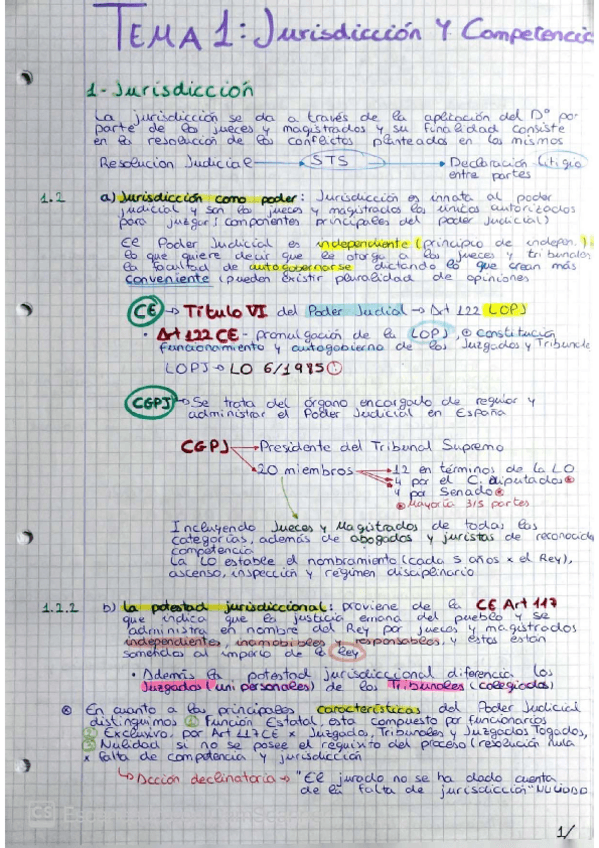 TEMA 1: Jurisdicción Y Competencia
1 - Jurisdicción
La jurisdicción se da a través de la aplicación del Dº por
parte de los jueces y magistrados y su finalidad consiste
en la resolución de los conflictos planteados en los mismos
Resolución Judicial → STS → Declaración Litigio
entre partes
1.2 a) Jurisdicción como poder: Jurisdicción es innata al poder
judicial y son los jueces y magistrados los únicos autorizados
para juzgar (componentes principales del poder judicial)
El Poder Judicial es independiente (principio de indepen.)
lo que quiere decir que le otorga a los jueces y tribunales
la facultad de autogobernarse dictando lo que crean más
conveniente (pueden existir pluralidad de opiniones
CE → Título VI del Poder Judial → Art 122 LOPJ
• Art 122 CE - promulgación de la LOPJ, constitución
funcionamiento y autogobierno de los Juzgados y Tribunale
LOPJ → LO 6/1985
CGPJ → Se trata del órgano encargado de regular y
administrar el Poder Judicial en España
CGPJ → Presidente del Tribunal Supremo
→ 20 miembros → 12 en términos de la LO
→ 4 por el C. Diputados
→ 4 por Senado
Mayoría 3/5 partes
Incluyendo Jueces y Magistrados de todas las
categorías, además de abogados y juristas de reconocida
competencia
La LO estable el nombramiento (cada 5 años x el Rey),
ascenso, inspección y régimen disciplinario
1.2.2 b) La potestad jurisdiccional: proviene de la CE Art 117
que indica que la justicia emana del pueblo y se
administra en nombre del Rey por jueces y magistrados
independientes, inamobibles y responsables, y estos están
sometidos al imperio de la ley
• Además la potestad jurisdiccional diferencia los
Juzgados (uni personales) de los Tribunales (colegiados)
En cuanto a las principales características del Poder Judicial
distinguimos 1 Función Estatal, esta compuesto por funcionarios
2 Exclusivo, por Art 117 CE x Juzgado, Tribunales y Juzgados Togados,
3 Nulidad si no se posee el requisito del proceso (resolución nula
x falta de competencia y jurisdicción
↳ Acción declinatoria → "El jurado no se ha dado cuenta
de la falta de jurisdicción"
CS
1/